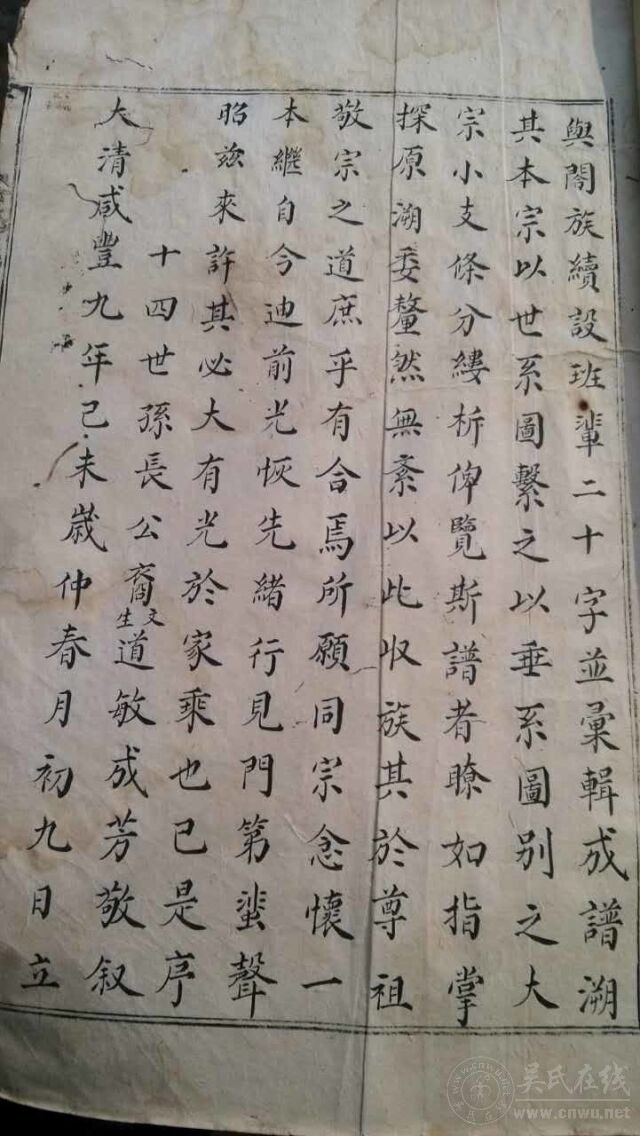 與閤族續設班輩二十字並彙輯成譜溯
其本宗以世系圖繫之以垂系圖別之大
宗小支條分縷析俾覽斯譜者瞭如指掌
探原溯委釐然無紊以此收族其於尊祖
敬宗之道庶乎有合焉所願同宗念懷一
本繼自今迪前光恢先緒行見門第蜚聲
昭茲來許其必大有光於家乘也已是序
十四世孫長公裔文生道敏成芳敬叙
大清咸豐九年己未歲仲春月初九日立
吴氏在线
www.cnwu.net